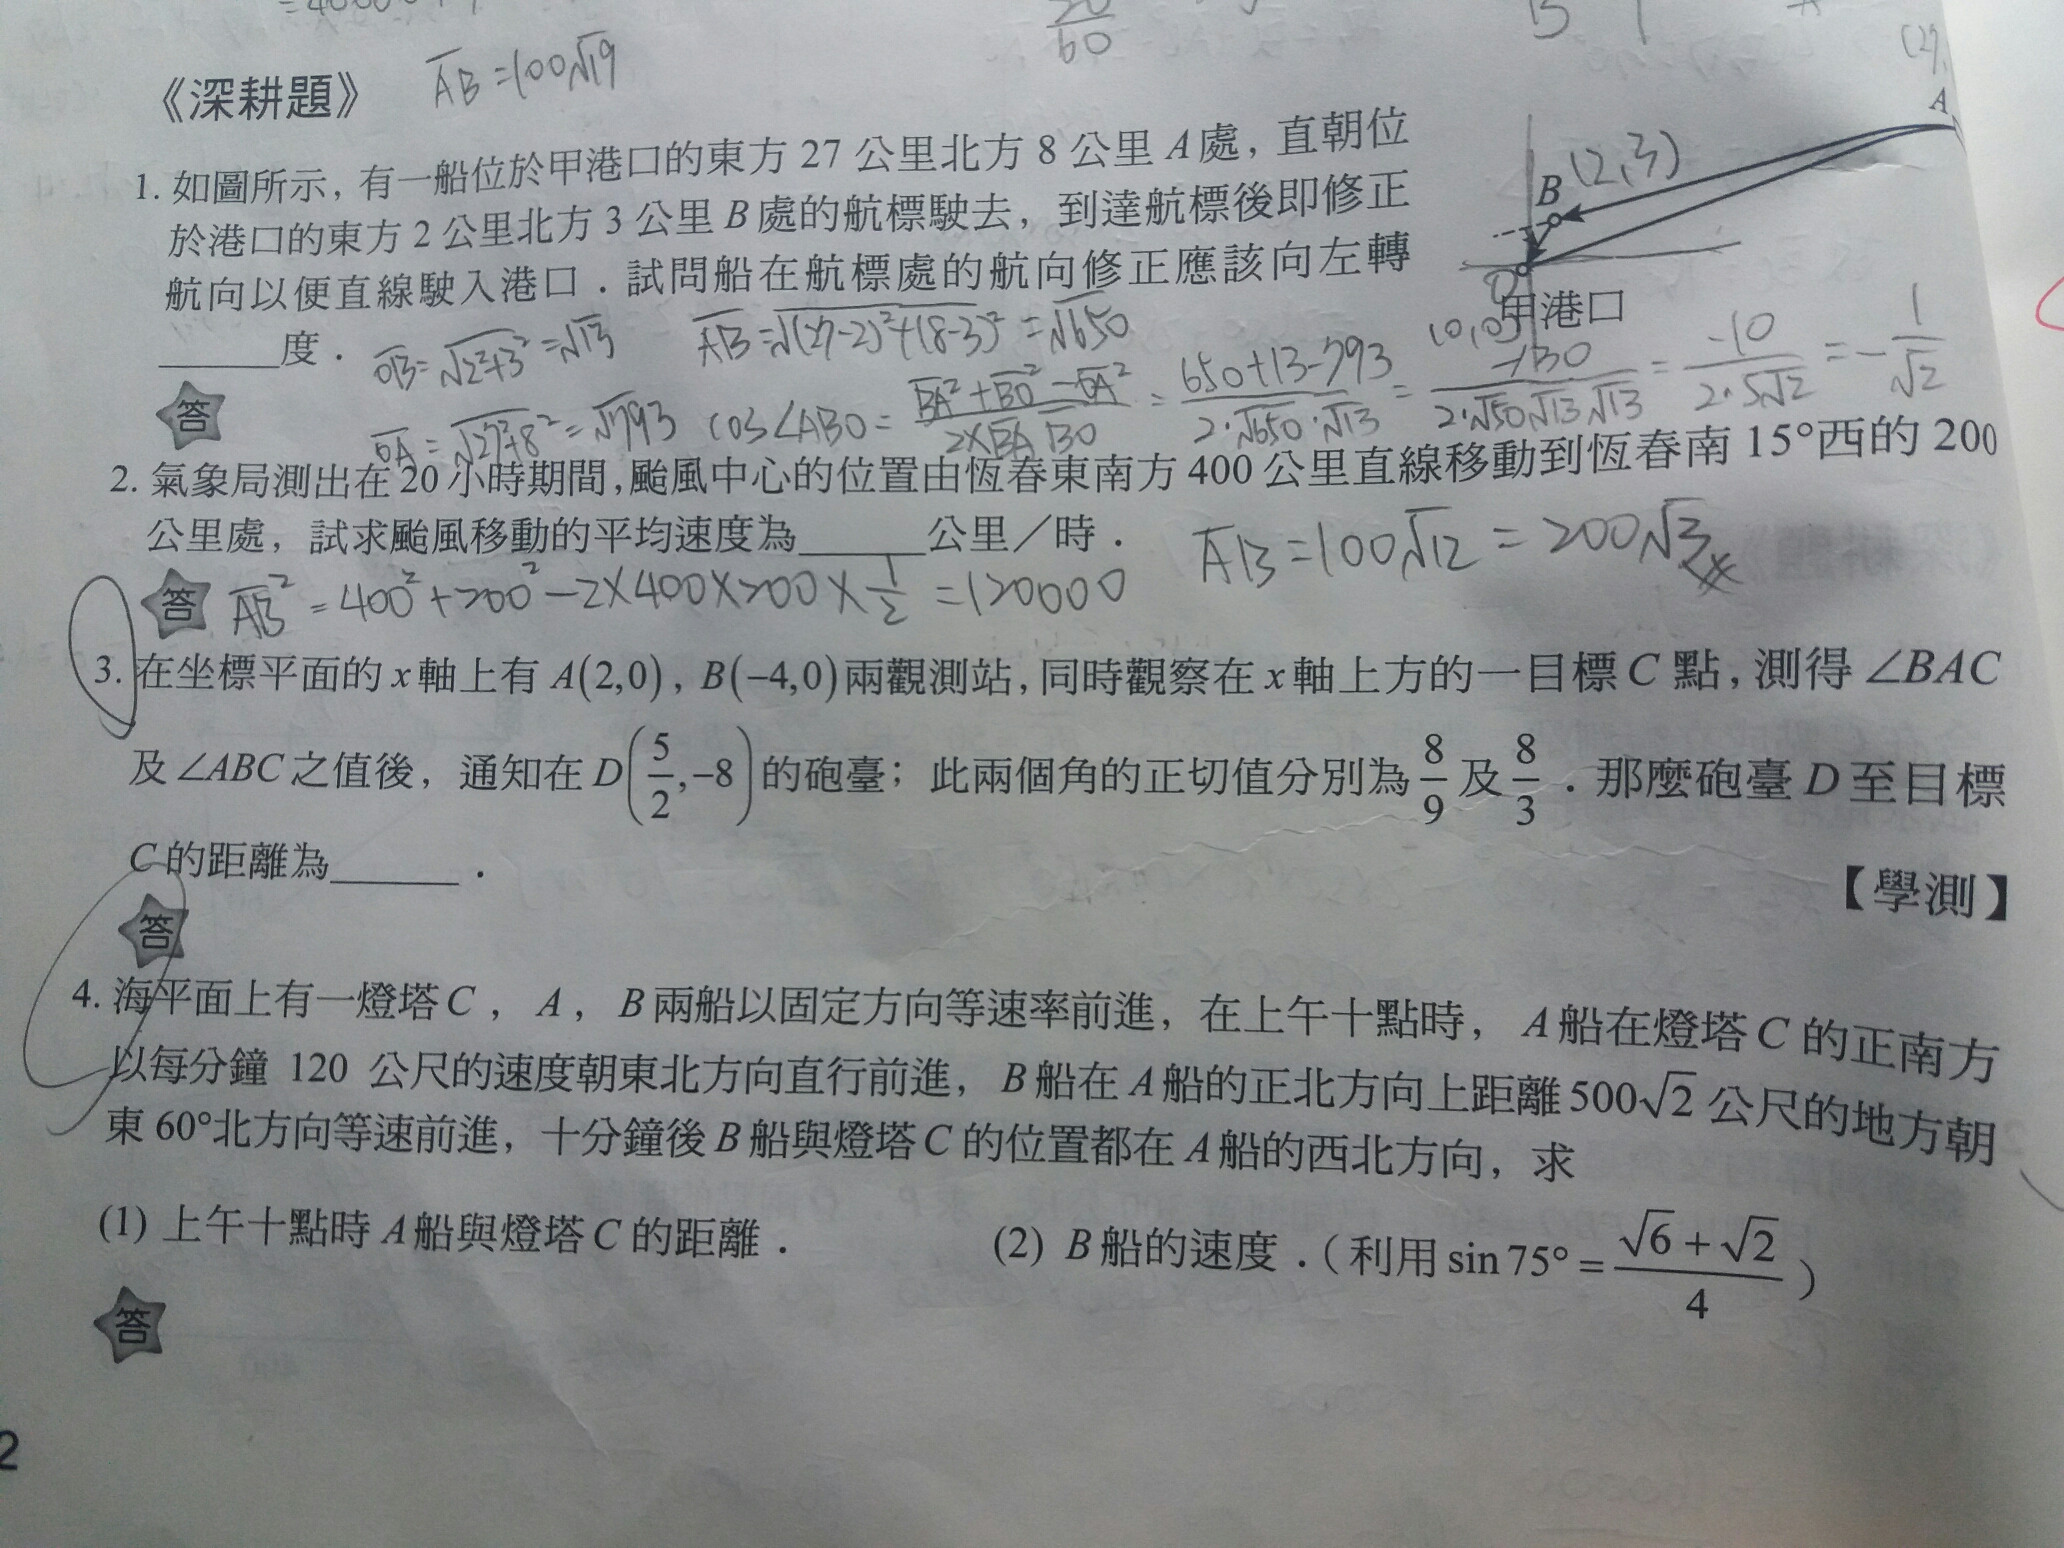 《深耕題》 AB=100√19
20/60
1. 如圖所示, 有一船位於甲港口的東方 27 公里北方 8 公里 A 處, 直朝位
於港口的東方 2 公里北方 3 公里 B 處的航標駛去, 到達航標後即修正
航向以便直線駛入港口. 試問船在航標處的航向修正應該向左轉
______度.
A
B (2,3)
O
甲港口
(0,0)
OB=√2²+3²=√13 AB=√(27-2)²+(8-3)²=√650
答
OA=√27²+8²=√793 cos∠ABO=(BA²+BO²-OA²)/(2×BA BO)=(650+13-793)/(2·√650·√13)=-130/(2·√50√13√13)=-10/(2·5√2)=-1/√2
2. 氣象局測出在 20 小時期間, 颱風中心的位置由恆春東南方 400 公里直線移動到恆春南 15°西的 200
公里處, 試求颱風移動的平均速度為______公里／時.
AB=100√12=200√3
答 AB²=400²+200²-2×400×200×1/2=120000
3. 在坐標平面的 x 軸上有 A(2,0), B(−4,0)兩觀測站, 同時觀察在 x 軸上方的一目標 C 點, 測得 ∠BAC
及 ∠ABC 之值後, 通知在 D(5/2,−8)的砲臺; 此兩個角的正切值分別為 8/9 及 8/3. 那麼砲臺 D 至目標
C 的距離為______.
【學測】
答
4. 海平面上有一燈塔 C, A, B 兩船以固定方向等速率前進, 在上午十點時, A 船在燈塔 C 的正南方
以每分鐘 120 公尺的速度朝東北方向直行前進, B 船在 A 船的正北方向上距離 500√2 公尺的地方朝
東 60°北方向等速前進, 十分鐘後 B 船與燈塔 C 的位置都在 A 船的西北方向, 求
(1) 上午十點時 A 船與燈塔 C 的距離. (2) B 船的速度.(利用 sin 75°=(√6+√2)/4)
答
2